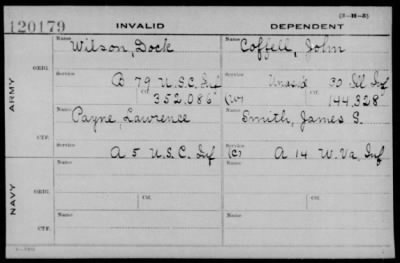 (3-H-3)
120179 INVALID DEPENDENT
ARMY
ORIG.
Name Wilson, Dock
Name Coffell, John
Service B 79 U.S.C. Inf
Ctf. 352,086
Service 30 Ill Inf
(W) 144,328
CTF.
Name Payne, Lawrence
Name Smith, James S.
Service A 5 U.S.C. Inf
Service (C) A 14 W. Va. Inf
NAVY
ORIG.
Name Ctf.
Name Ctf.
CTF.
Name
Name